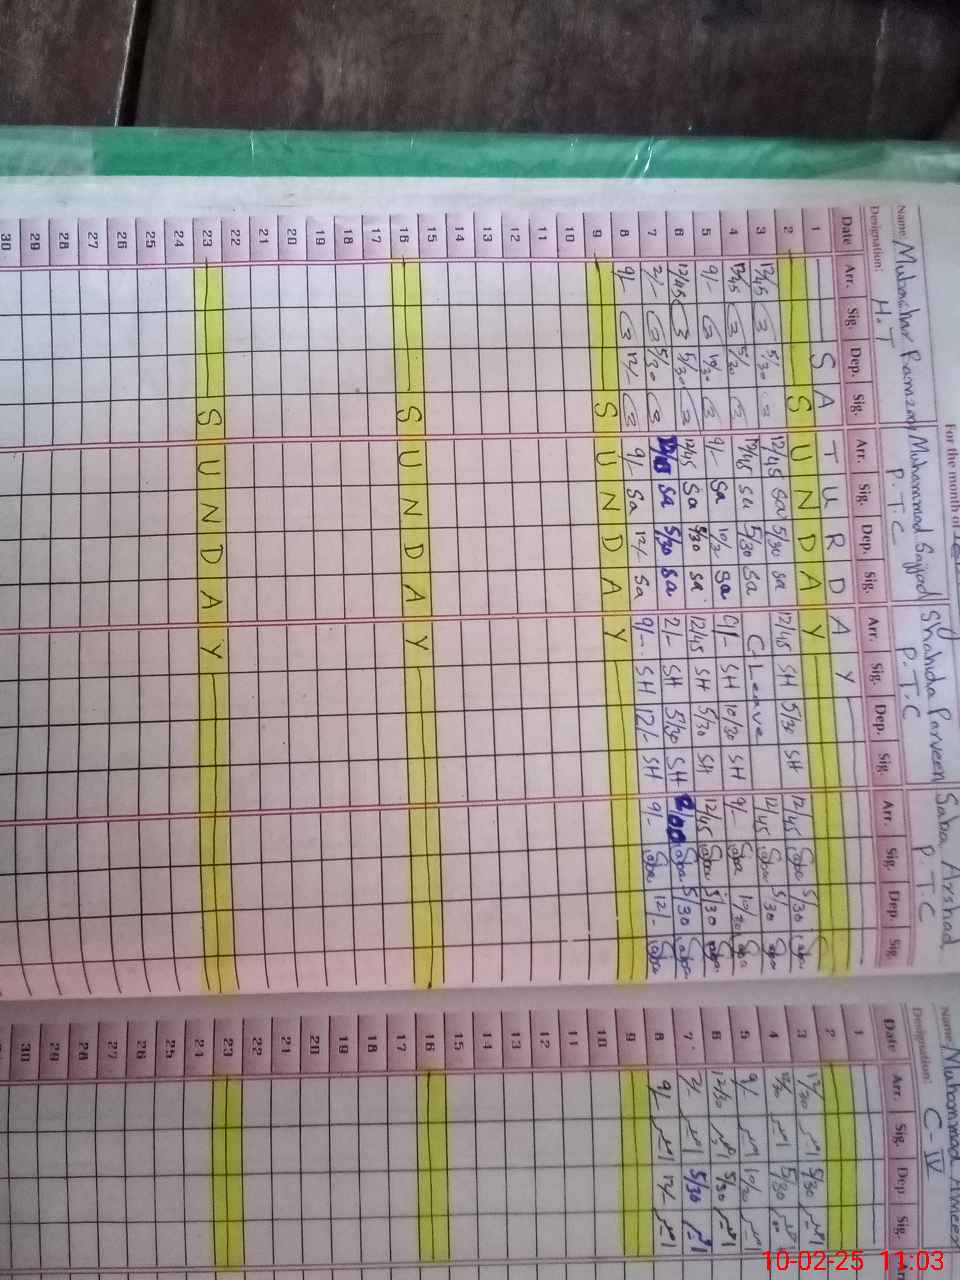 For the month of
Name Mubashar Ramzan Muhammad Sajjad Shahida Parveen Saba Arshad
Designation: H.T P.T.C P.T.C P.T.C
Date Arr. Sig. Dep. Sig. Arr. Sig. Dep. Sig. Arr. Sig. Dep. Sig. Arr. Sig. Dep. Sig.
1 SATURDAY
2 SUNDAY
3 12/45 5/30 12/45 Sa 5/30 Sa 12/45 SH 5/30 SH 12/45 Saba 5/30 Saba
4 12/45 5/30 12/45 Sa 5/30 Sa C.Leave 12/45 Saba 5/30 Saba
5 9/- 10/30 9/- Sa 10/3 Sa 9/- SH 10/30 SH 9/- Saba 10/30 Saba
6 12/45 5/30 12/45 Sa 5/30 Sa 12/45 SH 5/30 SH 12/45 Saba 5/30 Saba
7 2/- 5/30 Sa 5/30 Sa 2/- SH 5/30 SH Saba 5/30 Saba
8 9/- 12/- 9/- Sa 12/- Sa 9/- SH 12/- SH 9/- Saba 12/- Saba
9 SUNDAY
10
11
12
13
14
15
16 SUNDAY
17
18
19
20
21
22
23 SUNDAY
24
25
26
27
28
29
30
Name Muhammad Ameen
Designation: C-IV
Date Arr. Sig. Dep. Sig. Arr
1
2
3 12/30 5/30
4 12/30 5/30
5 9/- 10/30
6 12/30 5/30
7 2/- 5/30
8 9/- 12/-
9
10
11
12
13
14
15
16
17
18
19
20
21
22
23
24
25
26
27
28
29
30
10-02-25 11:03